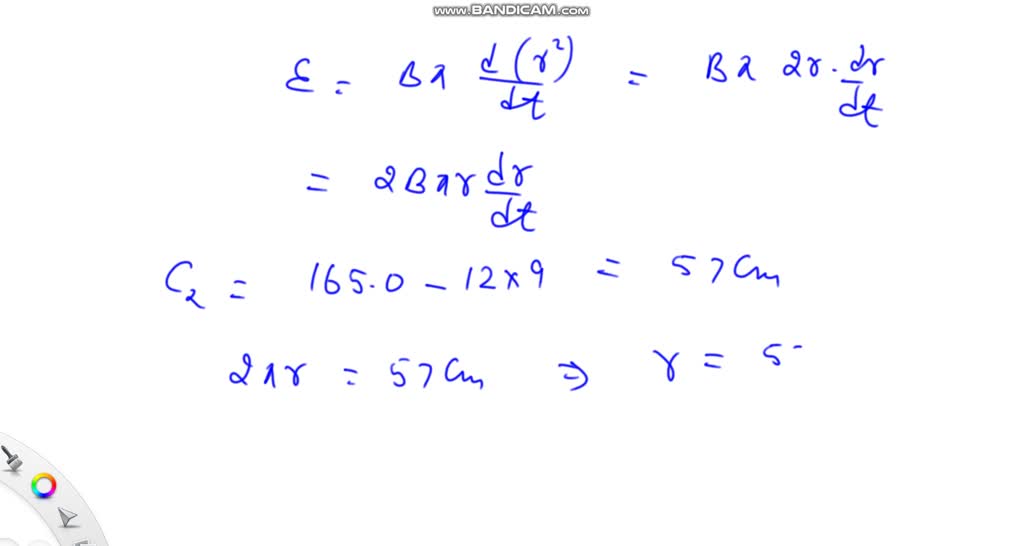 www.BANDICAM.com
ε = Bπ d(r²)/dt = Bπ 2r · dr/dt
= 2Bπr dr/dt
C₂ = 165.0 - 12×9 = 57 Cm
2πr = 57 Cm ⇒ r = 5